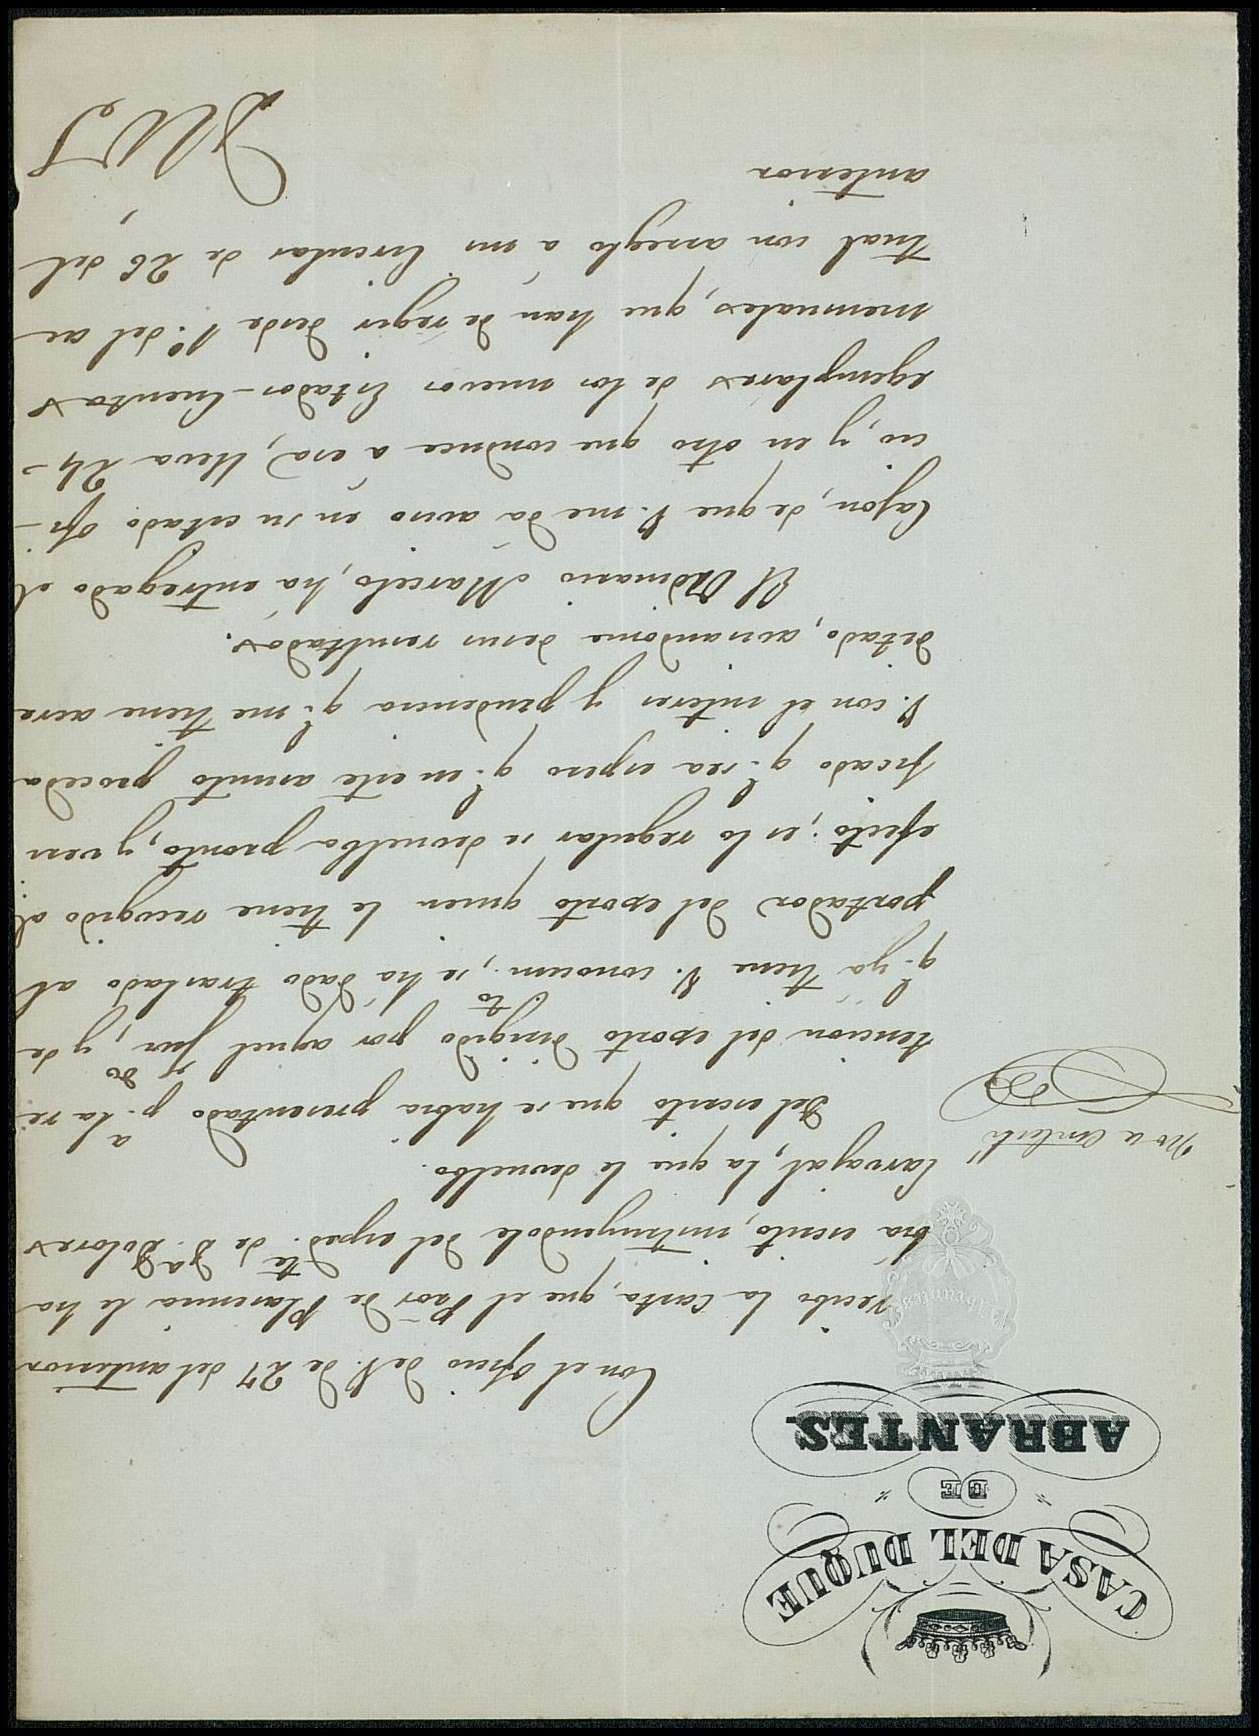 CASA DEL DUQUE
DE
ABRANTES
Con el oficio de V. de 27 del anterior
recibo la carta, que el Paor̃ de Plasencia le ha
bia escrito, instruyendole del expedte. de Da. Dolores
Carvajal, la que le devuelbo.
Del escrito que se habia presentado pa. la re
tencion del esporto dirigido por aquel Juzdo, y de
qe. ya tiene V. conocimto., se ha dado traslado al
portador del esporto quien le tiene recogido al
efecto; es lo regular se devuelba pronto, y veri
ficado qe. sea espero qe. en este asunto proceda
V. con el interes y prudencia qe. me tiene acre
ditado, avisandome de sus resultados.
El Ordinario Marcelo, ha entregado el
Cajon, de que V. me da aviso en su citado ofi-
cio, y en otro que conduce á esa, lleva 24-
egemplares de los nuevos Estados-Cuentas
mensuales, que han de regir desde 1º. del ac
tual con arreglo á mi Circular de 26 del
anterior